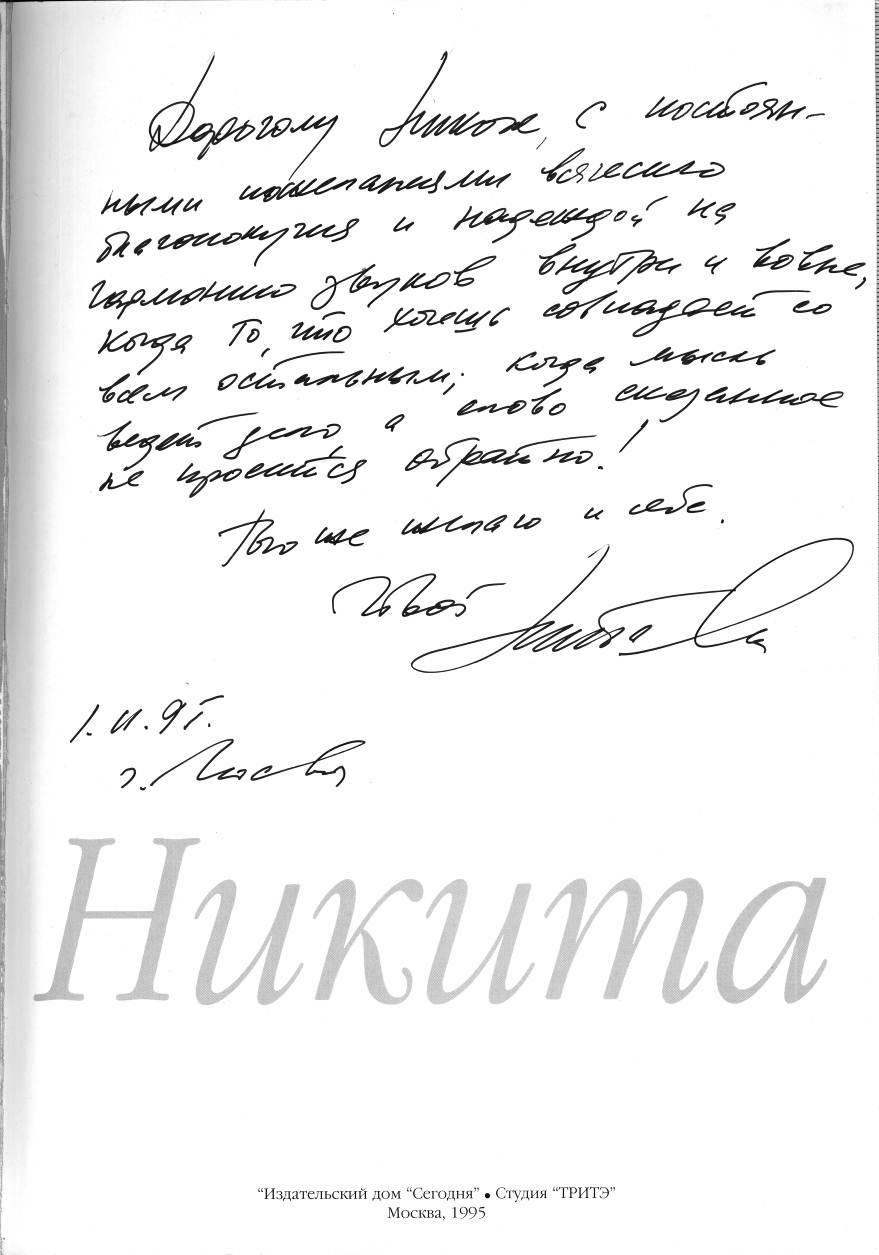 Дорогому Николе, с постоян-
ными пожеланиями всяческого
благополучия и надеждой на
гармонию звуков внутри и вовне,
когда то, что хочешь совпадает со
всем остальным; когда мысль
ведет дело, а слово сказанное
не просится обратно!
Того же желаю и себе.
Твой
1.II.95.
г. Москва
Никита
“Издательский дом “Сегодня” • Студия “ТРИТЭ”
Москва, 1995